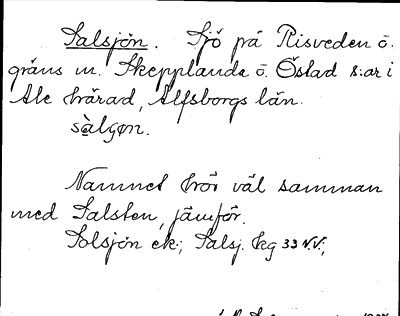 Salsjön. Sjö på Risveden ö.
gräns m. Skepplanda ö. Östad s:ar i
Ale härad, Älfsborgs län.
Namnet hör väl samman
med Salsten, jämför.
Solsjön ek; Salsj. hg 33 N.V.;